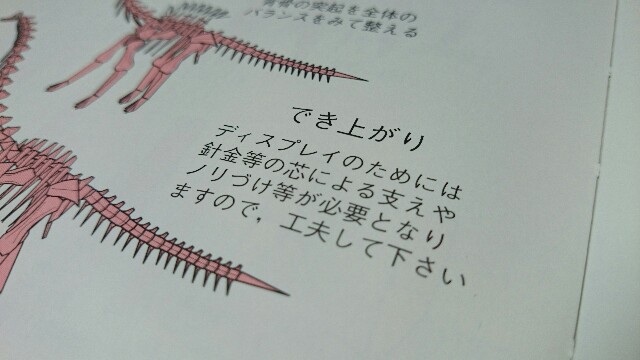 背骨の突起を全体の
バランスをみて整える
でき上がり
ディスプレイのためには
針金等の芯による支えや
ノリづけ等が必要となり
ますので，工夫して下さい